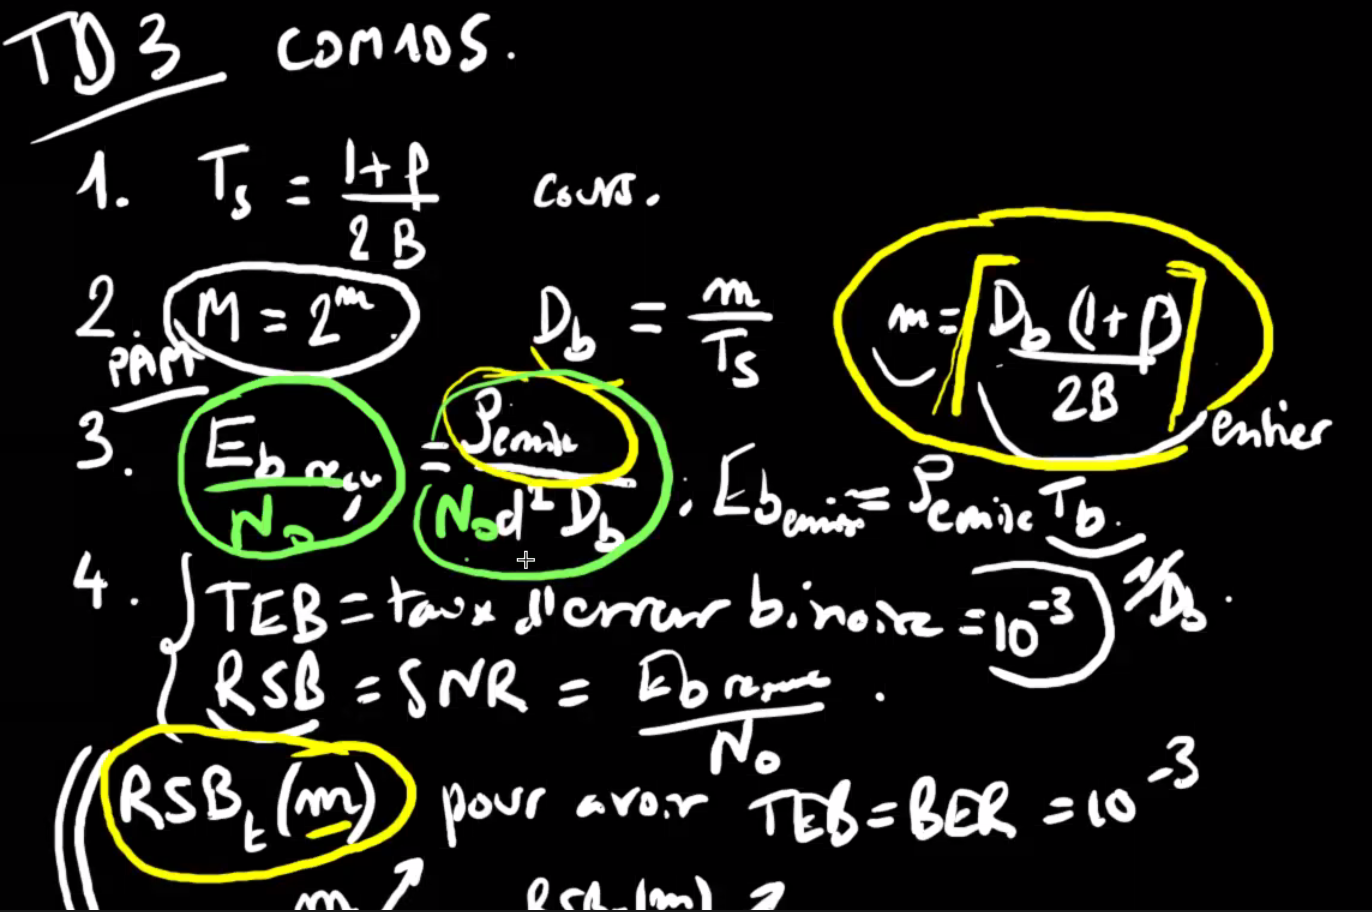 TD3 COMADS.
1. Ts = (1+ρ)/(2B) cours.
2. PAM M = 2^m Db = m/Ts m = ⌈Db (1+ρ)/(2B)⌉ entier
3. Eb reçu/N0 = Pemise/(N0 d² Db) ; Eb emise = Pemise Tb. 1/Db.
4. { TEB = taux d'erreur binaire = 10^-3
RSB = SNR = Eb reçue/N0 .
RSBt (m) pour avoir TEB = BER = 10^-3
m ↗ RSBt(m) ↗